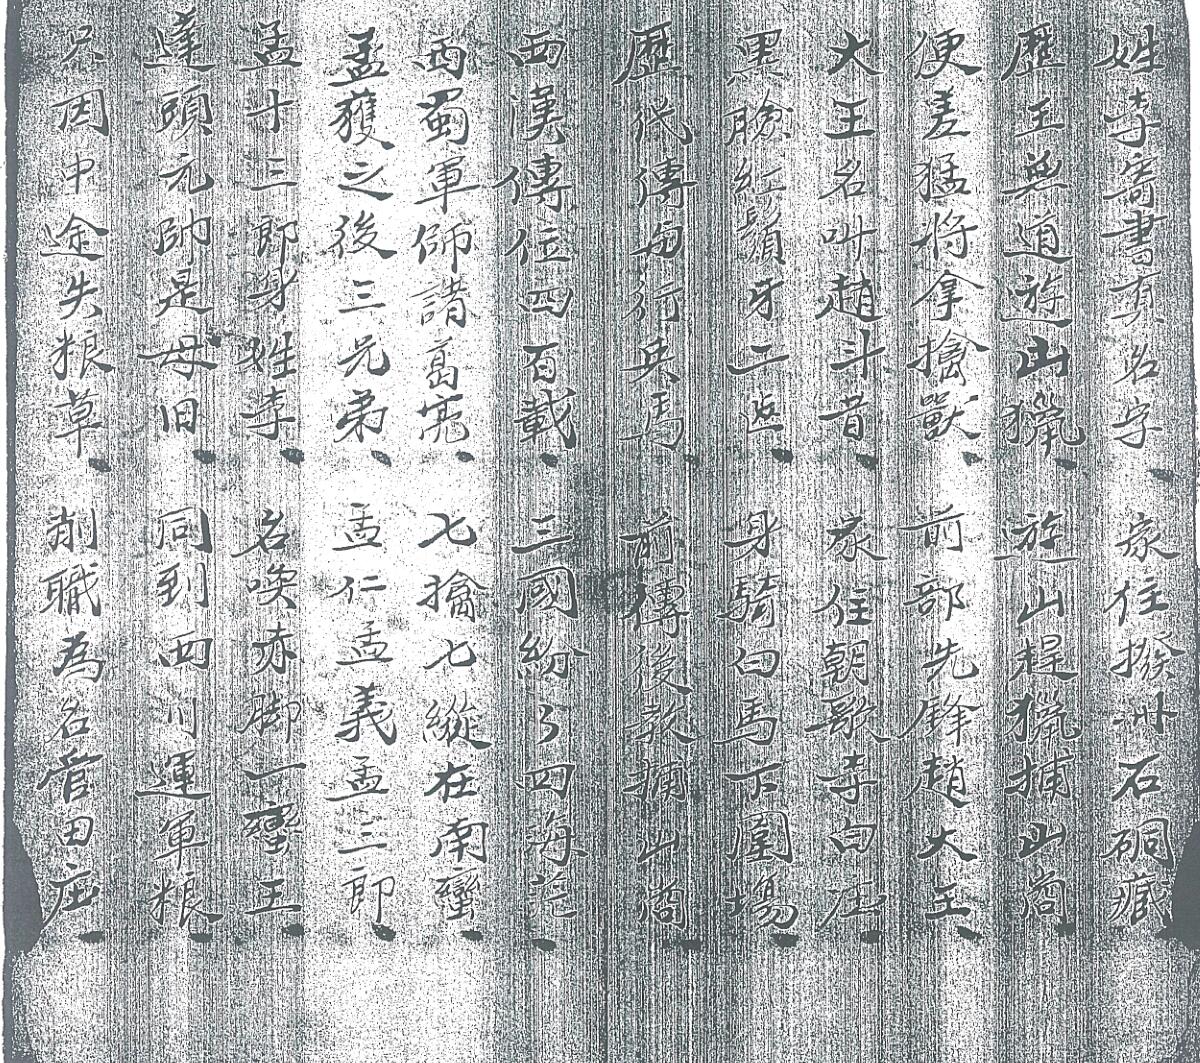 姓李寄書有名字 家住撥州石硐藏
歷王無道遊山獵 遊山趕獵捕山崗
便差猛將拿擒獸 前部先鋒趙大王
大王名叫趙斗首 家住朝歌李白庄
黑臉紅鬚牙二 身騎白馬下圍場
歷代傳 行兵馬 前傳後教捕山崗
西漢傳位四百載 三國紛々四海荒
西蜀軍師諸葛亮 七擒七縱在南蠻
孟獲之後三兄弟 孟仁孟義孟三郎
孟十三郎身姓李 名喚赤脚一蠻王
達頭元帥是母旧 同到四川運軍粮
不因中途失粮草 削職為名管田庄